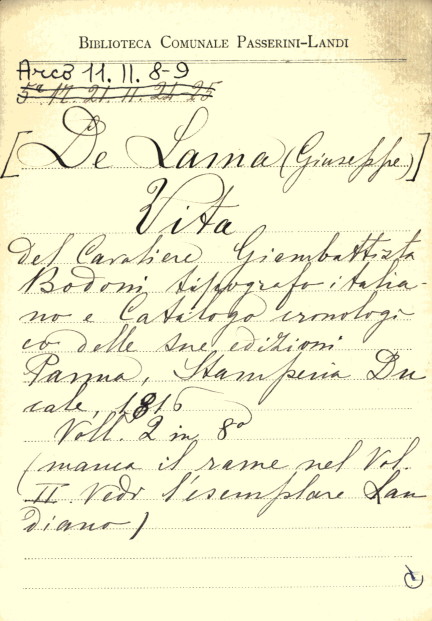 BIBLIOTECA COMUNALE PASSERINI-LANDI
Arc3 11. II. 8-9
5ª 17. 21. 11. 24-25
[De Lama (Giuseppe)]
Vita
del Cavaliere Giambattista
Bodoni tipografo italia-
no e Catalogo cronologi
co delle sue edizioni
Parma, Stamperia Du
cale, 1816
Voll. 2 in 8º
(manca il rame nel Vol.
II. Vedi l'esemplare Lan
diano)